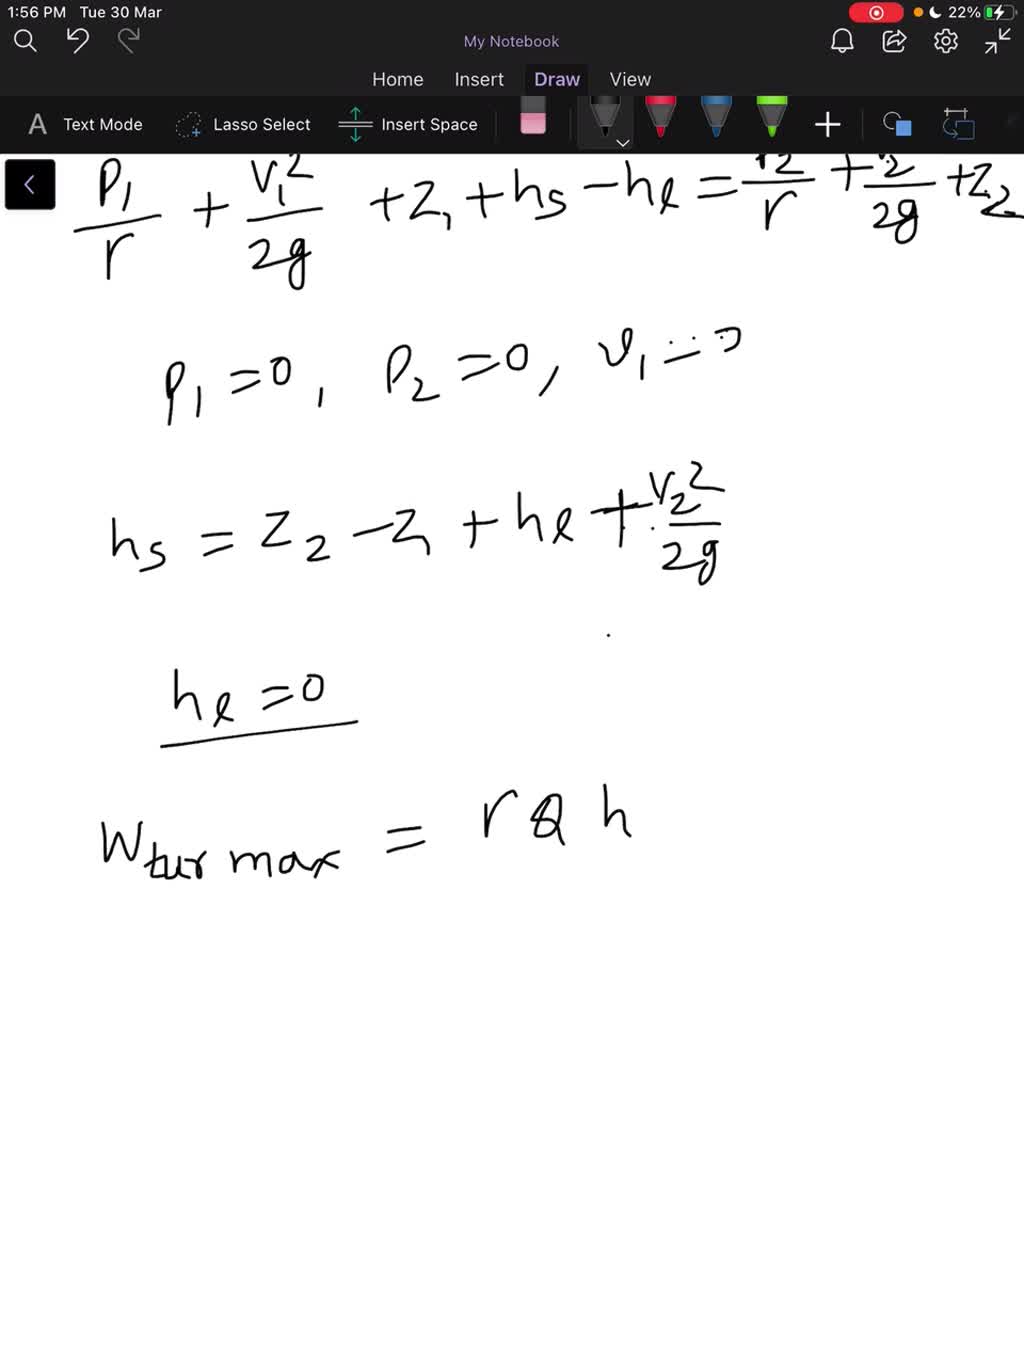 1:56 PM Tue 30 Mar 22%
My Notebook
Home Insert Draw View
A Text Mode Lasso Select Insert Space
P₁/r + V₁²/2g + Z₁ + hs - hℓ = /r + /2g + Z₂
P₁ = 0, P₂ = 0, v₁ = 0
hs = Z₂ - Z₁ + hℓ + V₂²/2g
hℓ = 0
Wtur max = r Q h